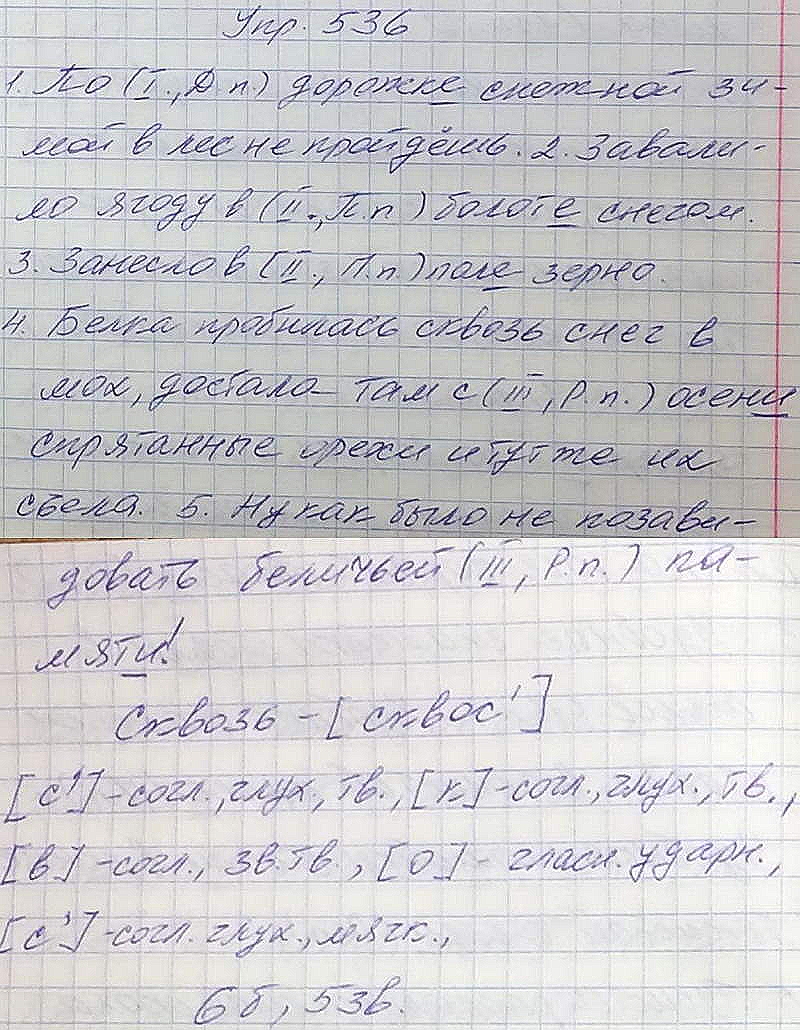 Упр. 536
1. По (I., Д.п.) дорожке снежной зи-
мой в лес не пройдёшь. 2. Завали-
ло ягоду в (II., П.п) болоте снегом.
3. Занесло в (II., П.п) поле зерно.
4. Белка пробилась сквозь снег в
мох, достала там с (III, Р.п.) осени
спрятанные орехи и тут же их
съела. 5. Ну как было не позави-
довать беличьей (III, Р.п.) па-
мяти!
Сквозь - [сквос']
[с'] - согл., глух., тв., [к] - согл., глух., тв.,
[в] - согл., зв. тв., [о] - гласн. ударн.,
[с'] - согл. глух., мягк.,
6б, 5зв.